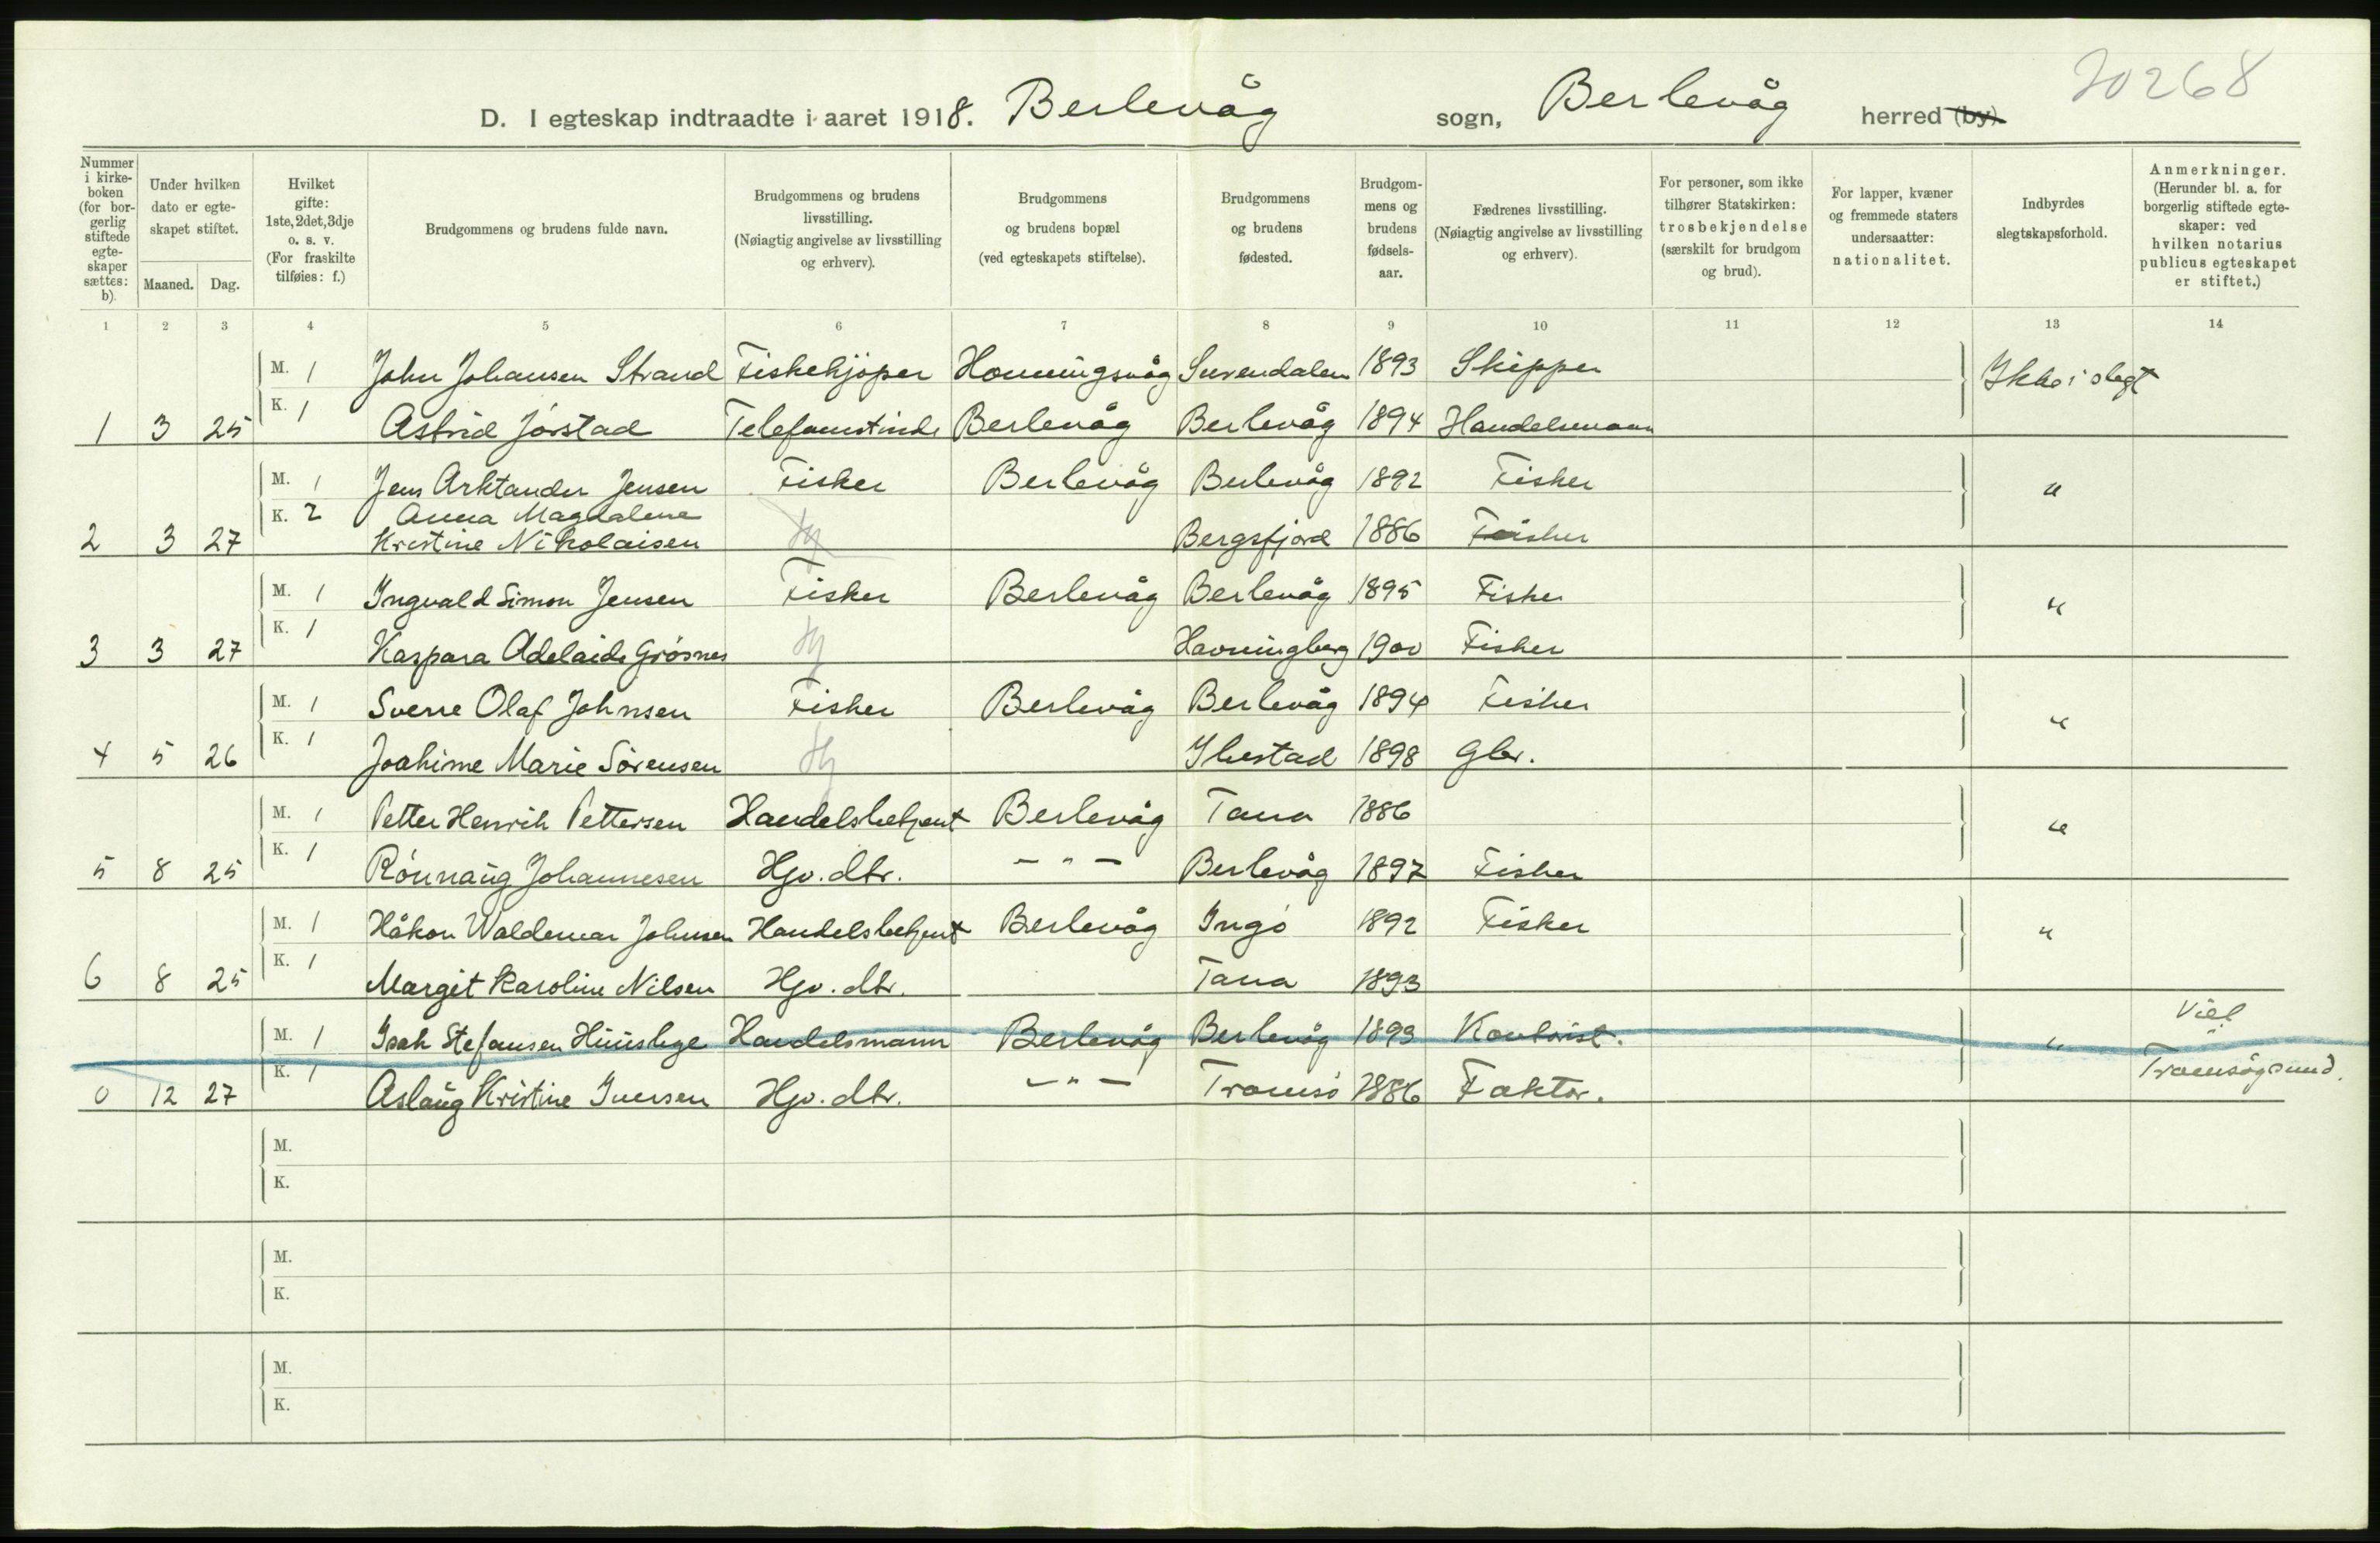 20268
D. I egteskap indtraadte i aaret 1918. Berlevåg sogn, Berlevåg herred (by).
Nummer i kirkeboken (for borgerlig stiftede egteskaper sættes: b).
Under hvilken dato er egteskapet stiftet.
Maaned. Dag.
Hvilket gifte: 1ste, 2det, 3dje o. s. v. (For fraskilte tilføies: f.)
Brudgommens og brudens fulde navn.
Brudgommens og brudens livsstilling. (Nøiagtig angivelse av livsstilling og erhverv).
Brudgommens og brudens bopæl (ved egteskapets stiftelse).
Brudgommens og brudens fødested.
Brudgommens og brudens fødselsaar.
Fædrenes livsstilling. (Nøiagtig angivelse av livsstilling og erhverv).
For personer, som ikke tilhører Statskirken: trosbekjendelse (særskilt for brudgom og brud).
For lapper, kvæner og fremmede staters undersaatter: nationalitet.
Indbyrdes slegtskapsforhold.
Anmerkninger. (Herunder bl. a. for borgerlig stiftede egteskaper: ved hvilken notarius publicus egteskapet er stiftet.)
1 2 3 4 5 6 7 8 9 10 11 12 13 14
M. 1 John Johansen Strand Fiskekjøper Honningsvåg Surendalen 1893 Skipper Ikke i slegt
1 3 25 K. 1 Astrid Jørstad Telefonistinde Berlevåg Berlevåg 1894 Handelsmann
M. 1 Jens Arktander Jensen Fisker Berlevåg Berlevåg 1892 Fisker "
K. 2 Anna Magdalene
2 3 27 Kristine Nikolaisen Hj Bergsfjord 1886 Fisker
M. 1 Ingvald Simon Jensen Fisker Berlevåg Berlevåg 1895 Fisker "
3 3 27 K. 1 Kaspara Adelaide Grøsnes Hj Havningberg 1900 Fisker
M. 1 Sverre Olaf Johnsen Fisker Berlevåg Berlevåg 1894 Fisker "
4 5 26 K. 1 Joakime Marie Sørensen Hj Ibestad 1898 Gbr.
M. 1 Petter Henrik Pettersen Handelsbetjent Berlevåg Tana 1886 "
5 8 25 K. 1 Rønnaug Johannesen Hjv. dtr. - " - Berlevåg 1897 Fisker
M. 1 Håkon Waldemar Johnsen Handelsbetjent Berlevåg Ingø 1892 Fisker "
6 8 25 K. 1 Margit Karoline Nilsen Hjv. dtr. Tana 1893
Viet
M. 1 Isak Stefansen Handelsmann Berlevåg Berlevåg 1893 Kontorist. " i
Tromsøysund.
0 12 27 K. 1 Aslaug Kristine Iversen Hjv. dtr. - " - Tromsø 1886 Faktor.
M.
K.
M.
K.
M.
K.